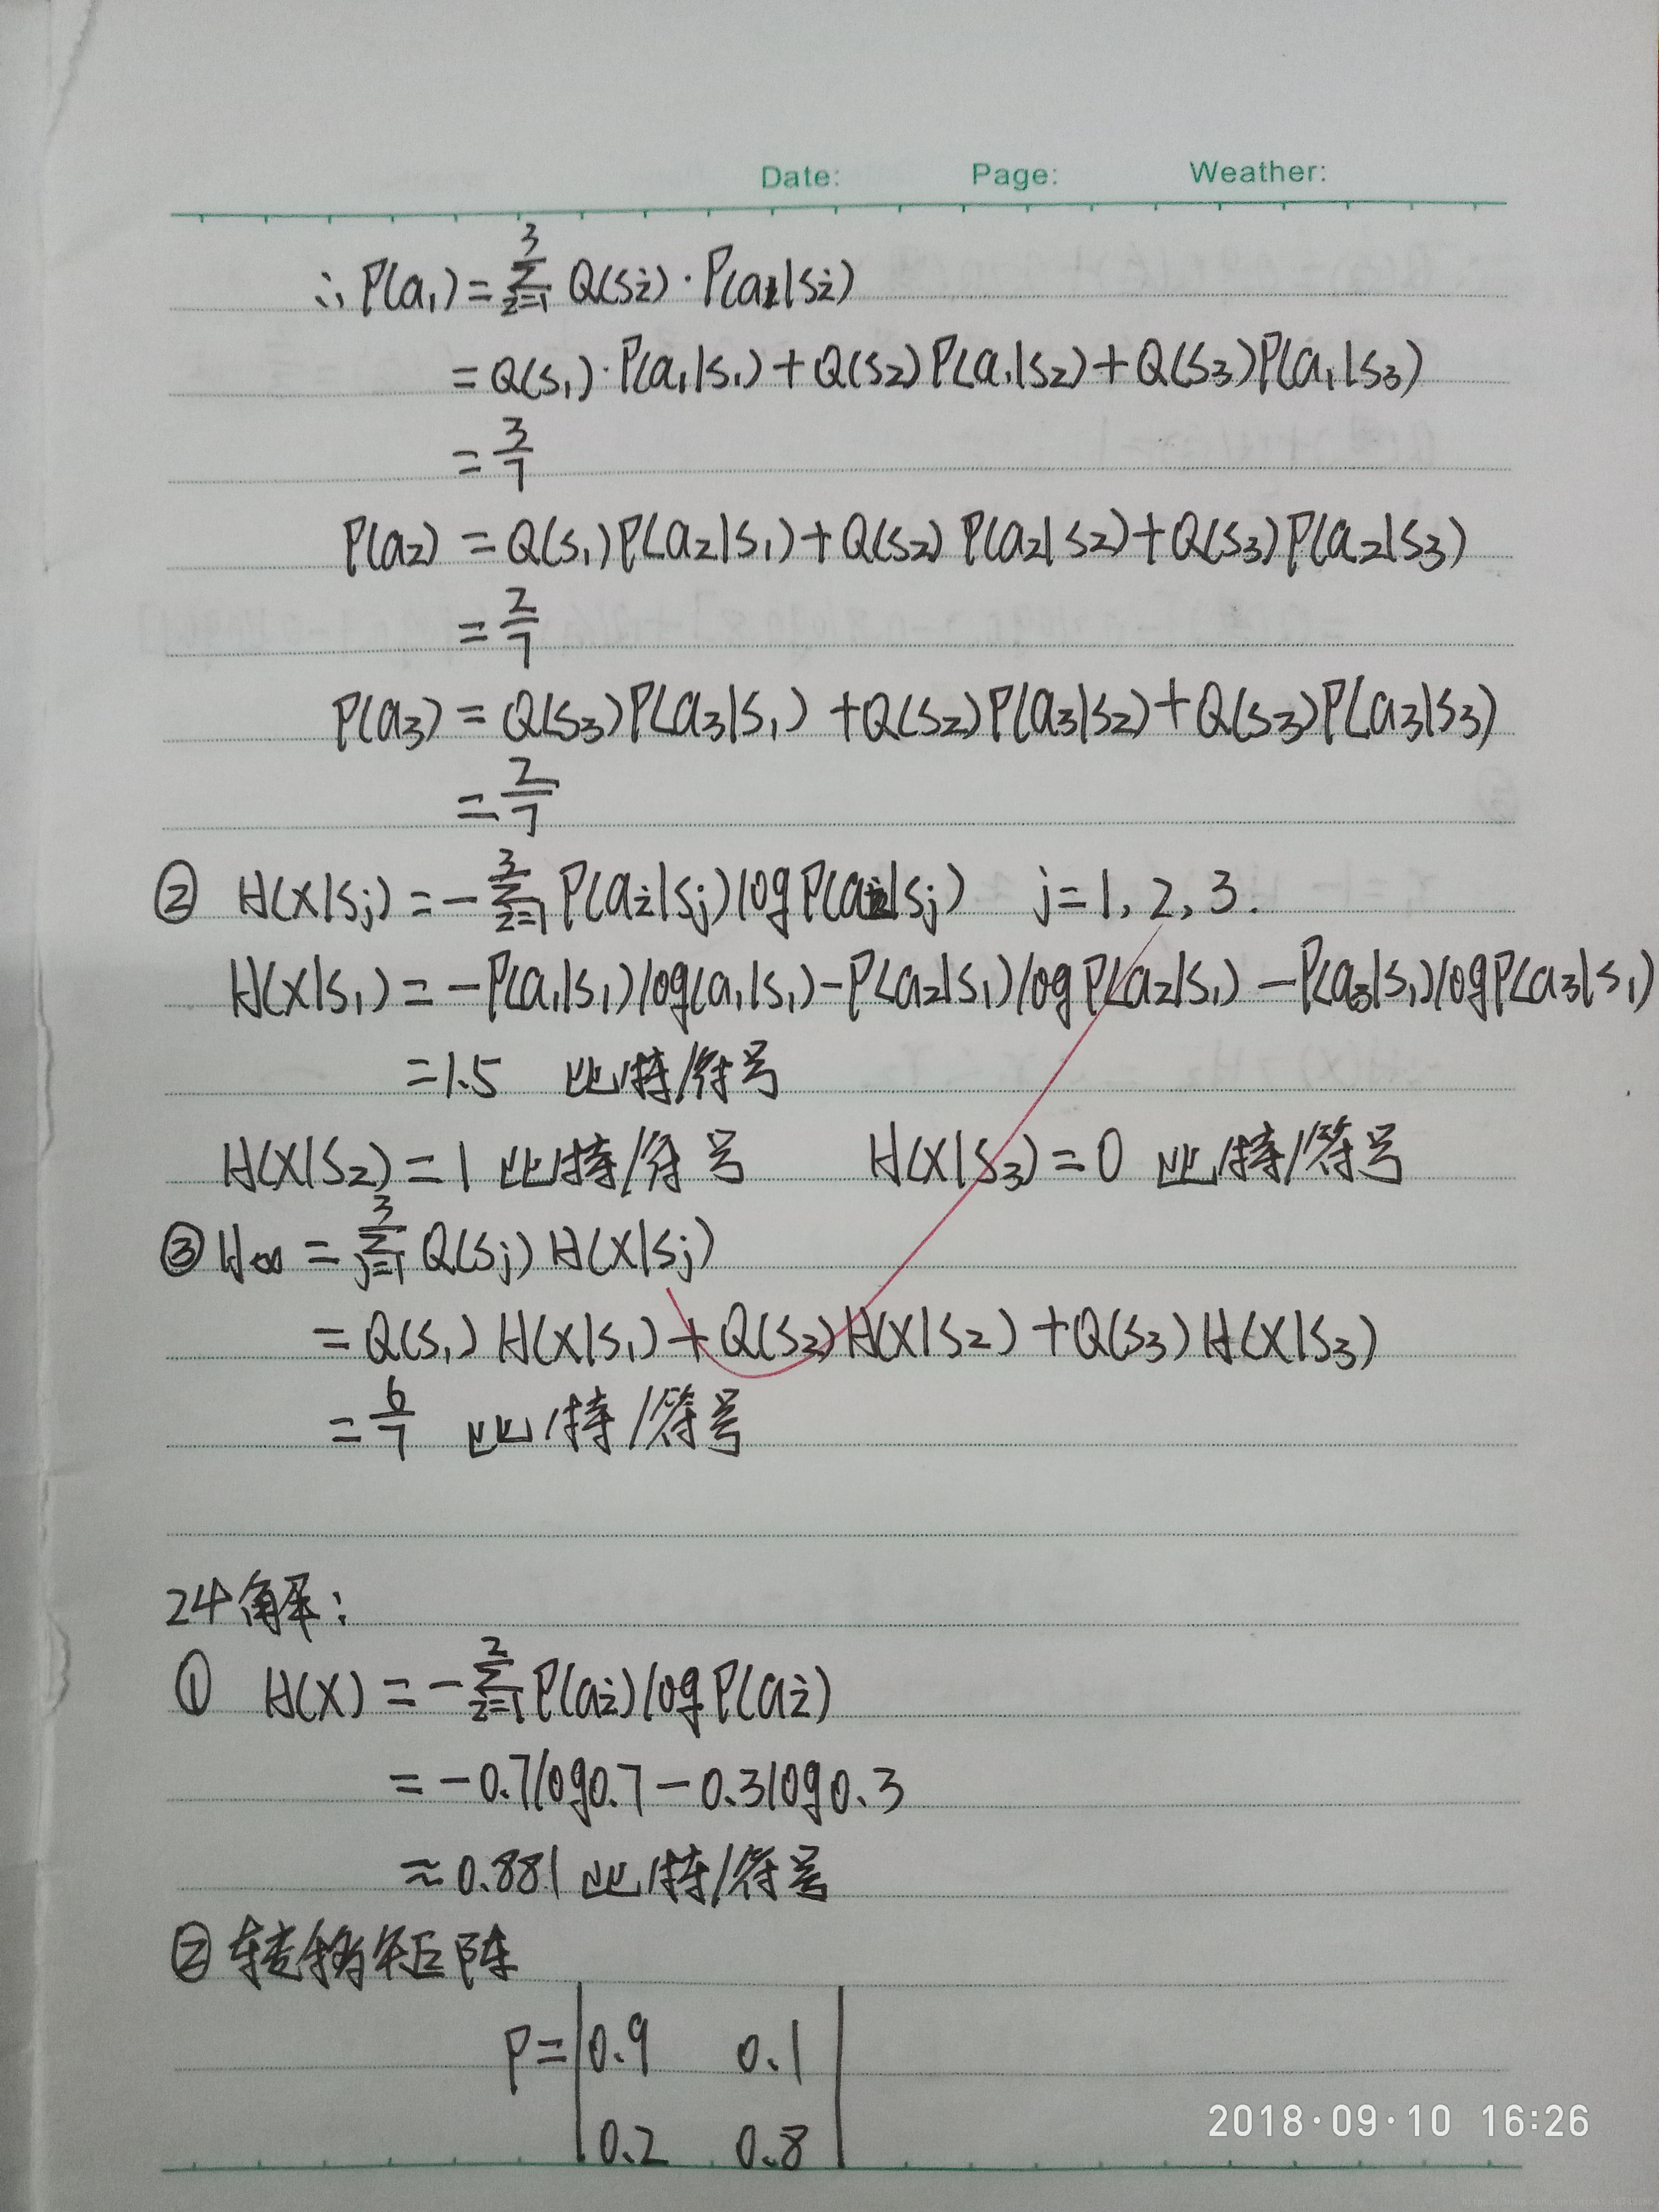 Date: Page: Weather:
∴ P(a₁) = ∑_{i=1}^{3} Q(si)·P(a1|si)
= Q(s₁)·P(a₁|s₁) + Q(s₂)P(a₁|s₂) + Q(s₃)P(a₁|s₃)
= 3/7
P(a₂) = Q(s₁)P(a₂|s₁) + Q(s₂)P(a₂|s₂) + Q(s₃)P(a₂|s₃)
= 2/7
P(a₃) = Q(s₃)P(a₃|s₁) + Q(s₂)P(a₃|s₂) + Q(s₃)P(a₃|s₃)
= 2/7
② H(X|sj) = -∑_{i=1}^{3} P(ai|sj)logP(ai|sj) j=1, 2, 3.
H(X|s₁) = -P(a₁|s₁)log(a₁|s₁) - P(a₂|s₁)logP(a₂|s₁) - P(a₃|s₁)logP(a₃|s₁)
=1.5 比特/符号
H(X|s₂) = 1 比特/符号 H(X|s₃) = 0 比特/符号
③ H∞ = ∑_{j=1}^{3} Q(sj) H(X|sj)
= Q(s₁) H(X|s₁) + Q(s₂)H(X|s₂) + Q(s₃) H(X|s₃)
= 6/7 比特/符号
24 解:
① H(X) = -∑_{i=1}^{2} P(ai)logP(ai)
= -0.7log0.7 - 0.3log0.3
≈ 0.881 比特/符号
② 转移矩阵
P = |0.9 0.1|
|0.2 0.8|
2018·09·10 16:26